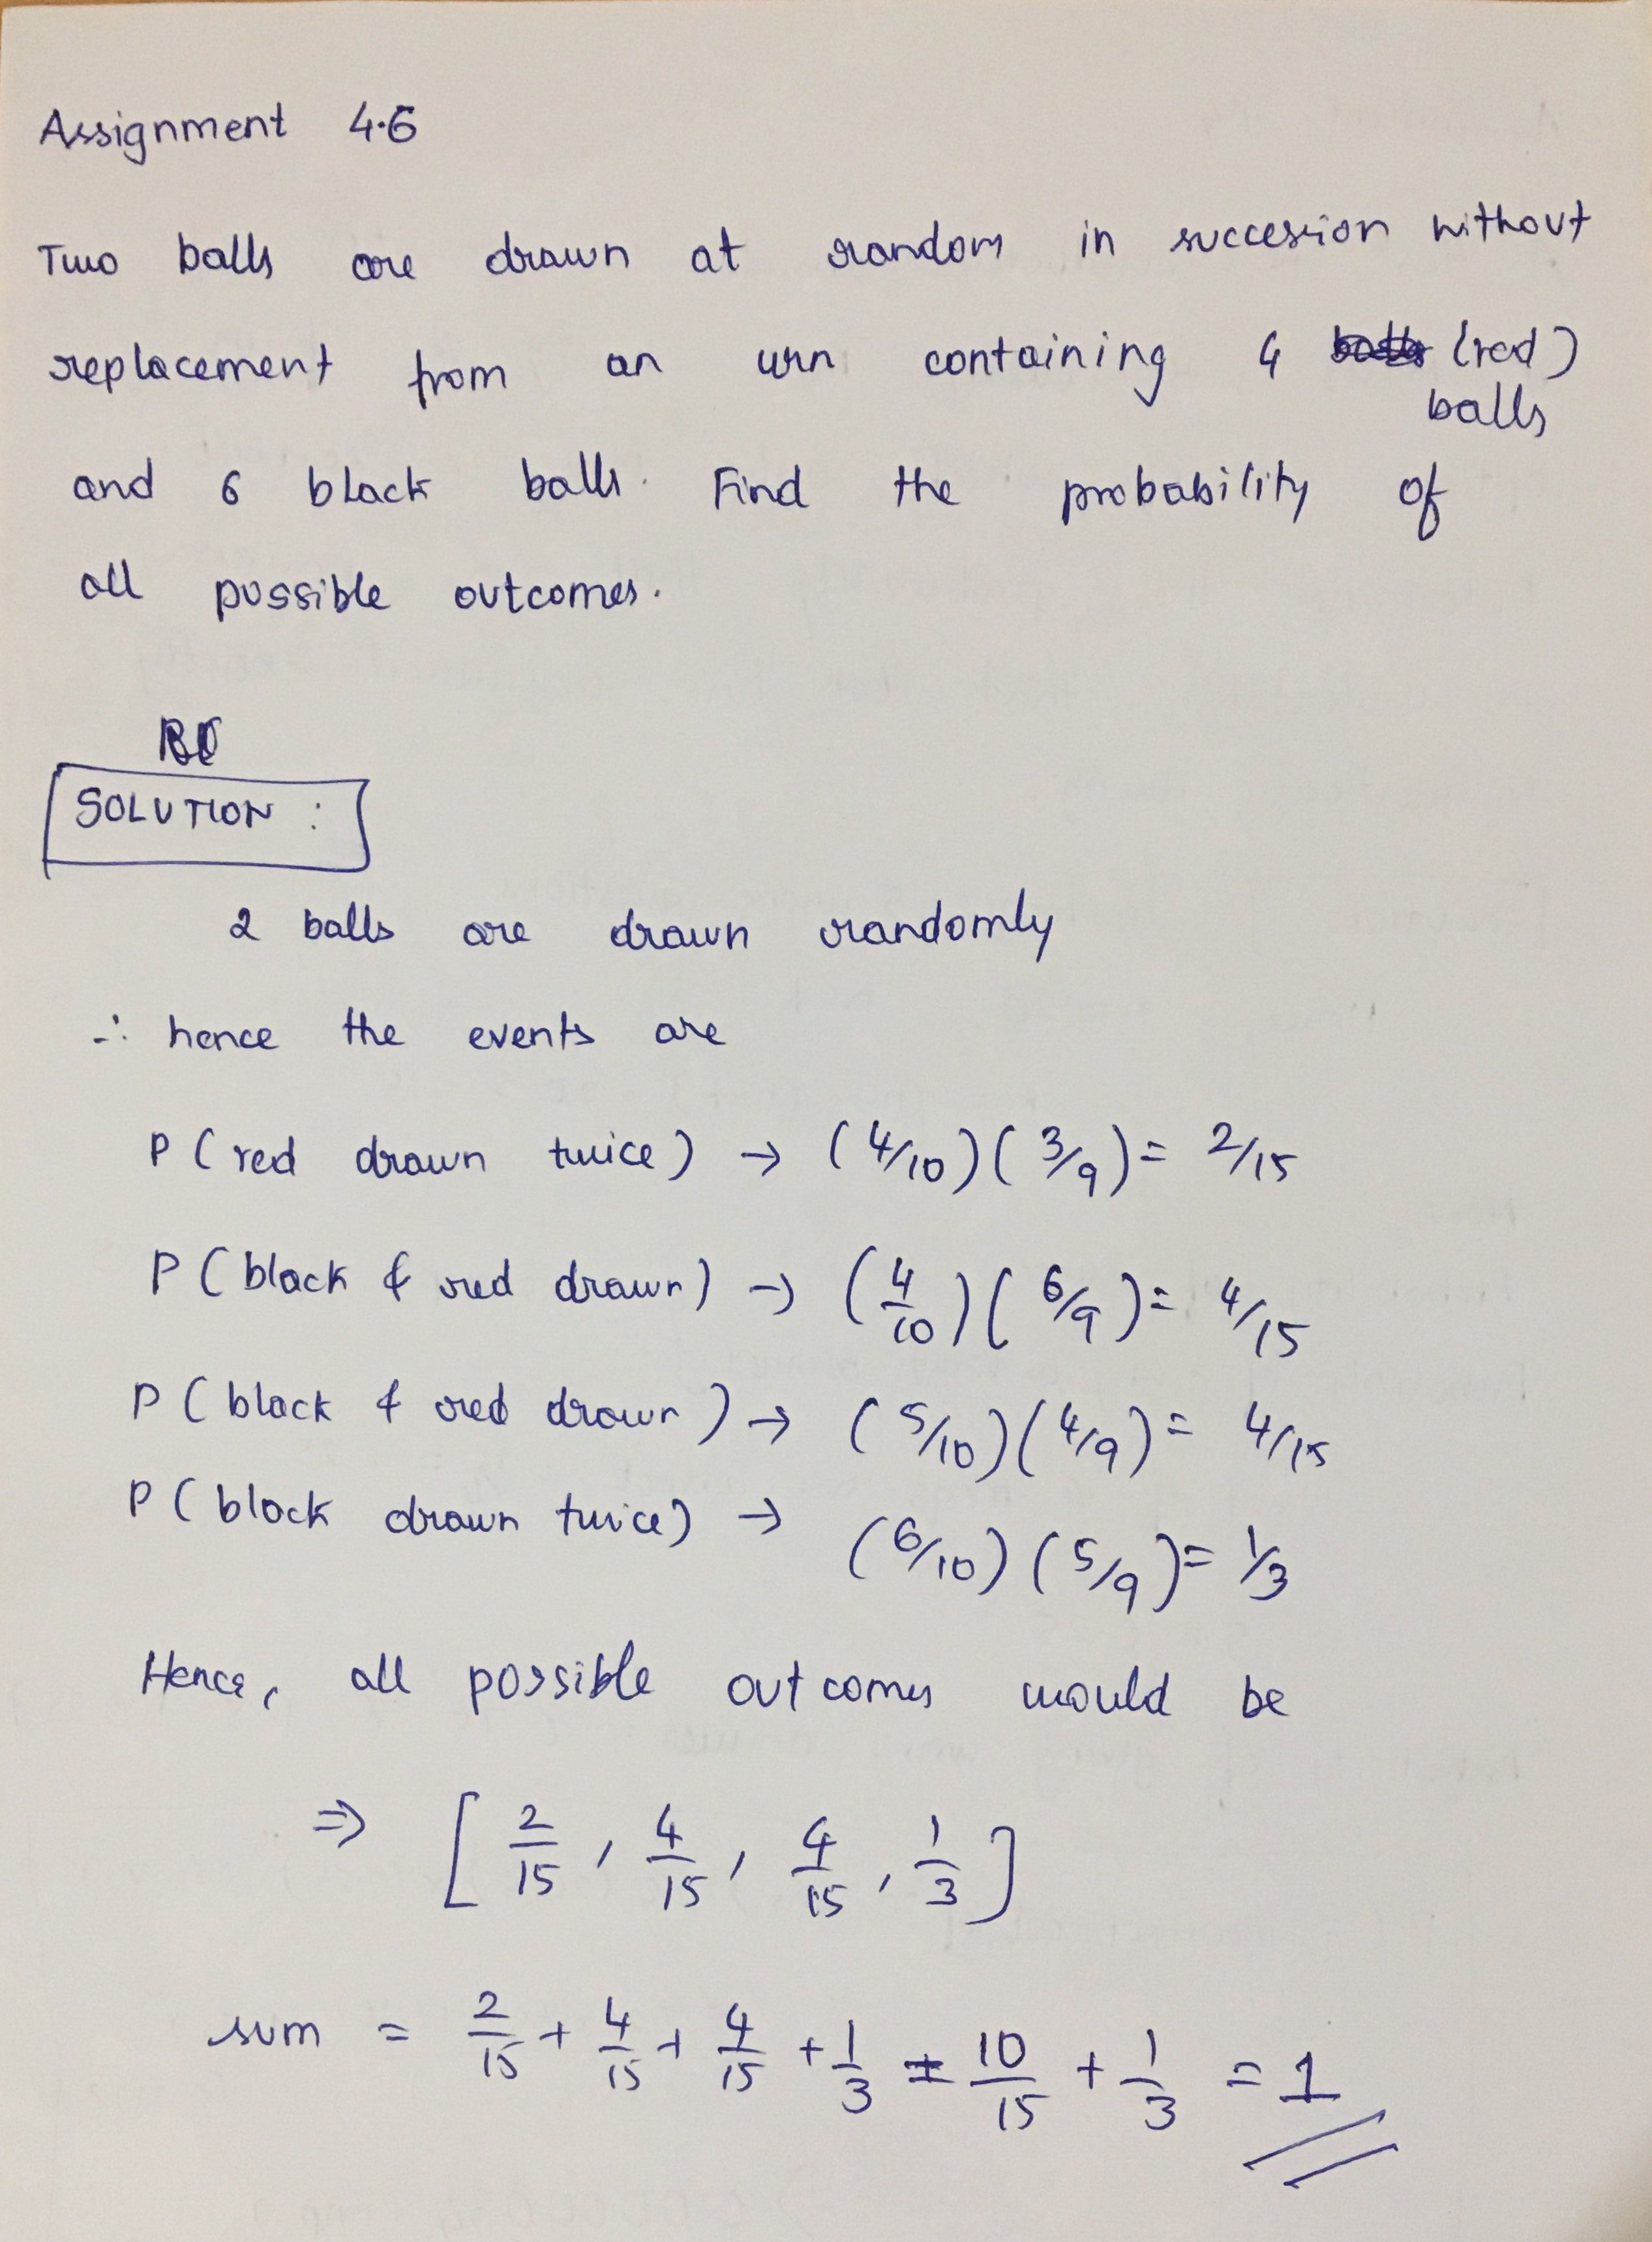 Assignment 4.6
Two balls are drawn at random in succession without
replacement from an urn containing 4 (red)
balls
and 6 black balls. Find the probability of
all possible outcomes.
SOLUTION :
2 balls are drawn randomly
∴ hence the events are
P (red drawn twice) → (4/10)(3/9) = 2/15
P (black & red drawn) → (4/10)(6/9) = 4/15
P (black & red drawn) → (5/10)(4/9) = 4/15
P (black drawn twice) → (6/10)(5/9) = 1/3
Hence, all possible outcomes would be
⇒ [2/15, 4/15, 4/15, 1/3]
sum = 2/15 + 4/15 + 4/15 + 1/3 = 10/15 + 1/3 = 1